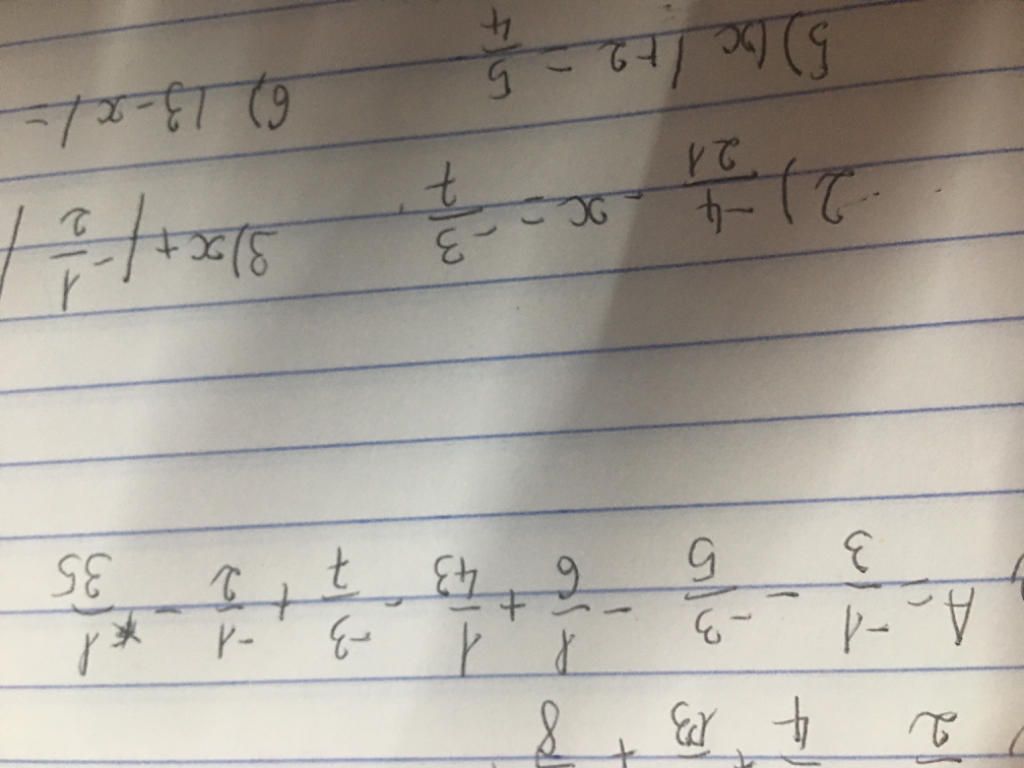 A = \frac{-1}{3} - \frac{-3}{5} - \frac{1}{6} + \frac{1}{43} - \frac{-3}{7} + \frac{-1}{2} - \frac{1}{35}
2) \frac{-4}{21} - x = \frac{-3}{7} 3) x + |-\frac{1}{2}|
5) |x| + 2 = \frac{5}{4} 6) |3 - x| =